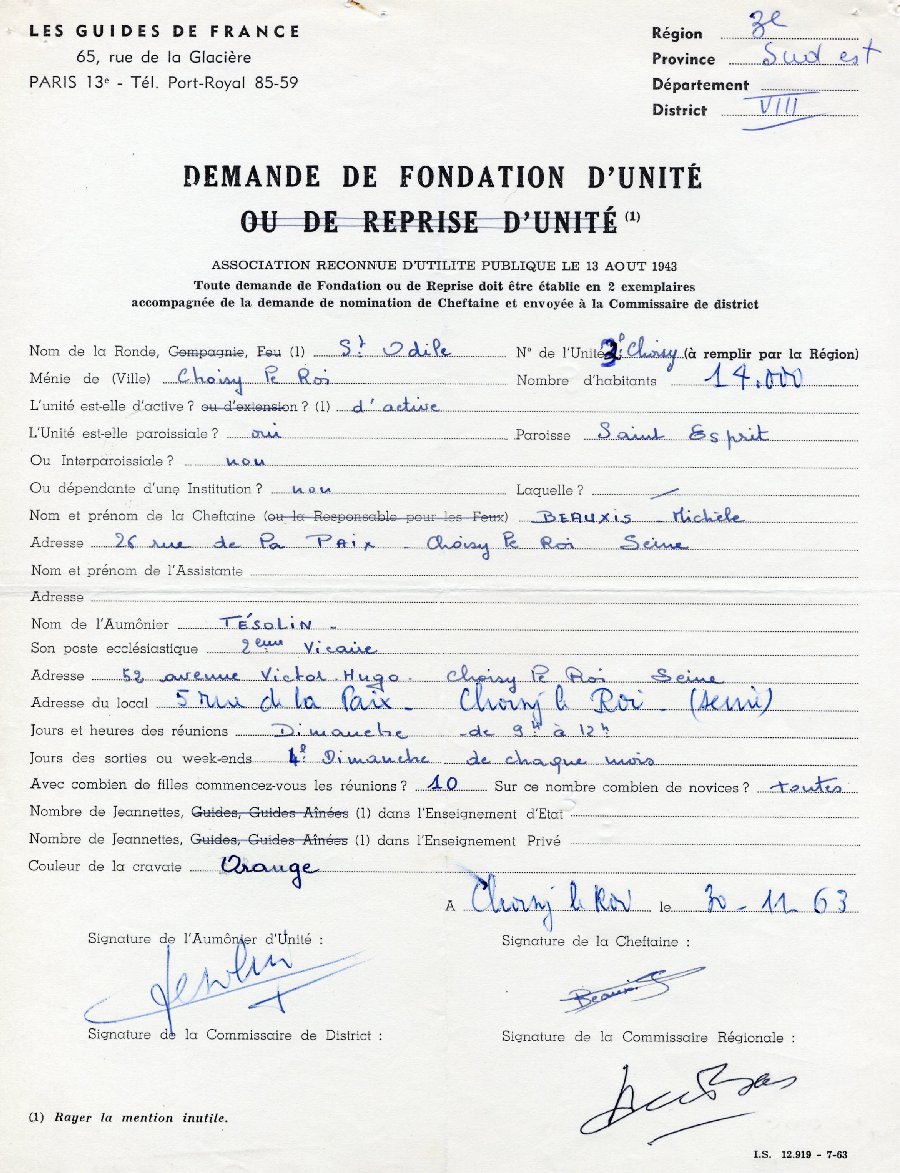 LES GUIDES DE FRANCE
65, rue de la Glacière
PARIS 13e - Tél. Port-Royal 85-59
Région 3e
Province Sud est
Département
District VIII
DEMANDE DE FONDATION D'UNITÉ
OU DE REPRISE D'UNITÉ (1)
ASSOCIATION RECONNUE D'UTILITE PUBLIQUE LE 13 AOUT 1943
Toute demande de Fondation ou de Reprise doit être établie en 2 exemplaires
accompagnée de la demande de nomination de Cheftaine et envoyée à la Commissaire de district
Nom de la Ronde, Compagnie, Feu (1) St Odile N° de l'Unité 3e Choisy (à remplir par la Région)
Ménie de (Ville) Choisy le Roi Nombre d'habitants 14.000
L'unité est-elle d'active ? ou d'extension ? (1) d'active
L'Unité est-elle paroissiale ? oui Paroisse Saint Esprit
Ou Interparoissiale ? non
Ou dépendante d'une Institution ? non Laquelle ? —
Nom et prénom de la Cheftaine (ou la Responsable pour les Feux) BEAUXIS - Michèle
Adresse 26 rue de la PAIX - Choisy le Roi Seine
Nom et prénom de l'Assistante
Adresse
Nom de l'Aumônier TÉSOLIN -
Son poste ecclésiastique 2ème Vicaire
Adresse 52 avenue Victor-Hugo - Choisy le Roi Seine
Adresse du local 5 rue de la Paix - Choisy le Roi - (Seine)
Jours et heures des réunions Dimanche de 9h à 12h
Jours des sorties ou week-ends 4e Dimanche de chaque mois
Avec combien de filles commencez-vous les réunions ? 10 Sur ce nombre combien de novices ? toutes
Nombre de Jeannettes, Guides, Guides Aînées (1) dans l'Enseignement d'Etat
Nombre de Jeannettes, Guides, Guides Aînées (1) dans l'Enseignement Privé
Couleur de la cravate Orange
A Choisy le Roi le 30-11-63
Signature de l'Aumônier d'Unité :
Signature de la Cheftaine :
Tesolin
Beauxis
Signature de la Commissaire de District :
Signature de la Commissaire Régionale :
(1) Rayer la mention inutile.
I.S. 12.919 - 7-63